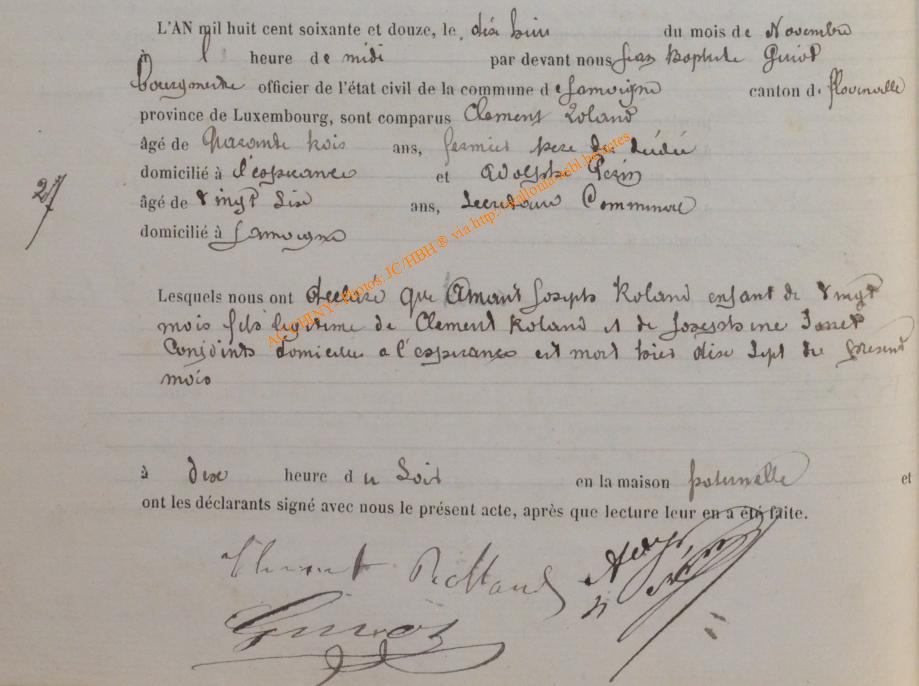 L'AN mil huit cent soixante et douze, le dix huit du mois de Novembre
à 1 heure de midi par devant nous Jean Baptiste Guiot
bourgmestre officier de l'état civil de la commune de Jamoigne canton de florenville
province de Luxembourg, sont comparus Clement Roland
âgé de Quarante trois ans, fermier pere du décédé
domicilié à l'esperance et Adolphe
âgé de vingt six ans, Secretaire Communal
domicilié à Jamoigne
27
Lesquels nous ont declaré que Amant Joseph Roland enfant de vingt
mois fils legitime de Clement Roland et de Josephine
Conjoints domicilies a l'esperance est mort hier dix sept du present
mois
à dix heure du Soir en la maison paternelle et
ont les déclarants signé avec nous le présent acte, après que lecture leur en a été faite.
Clement Rolland
Guiot